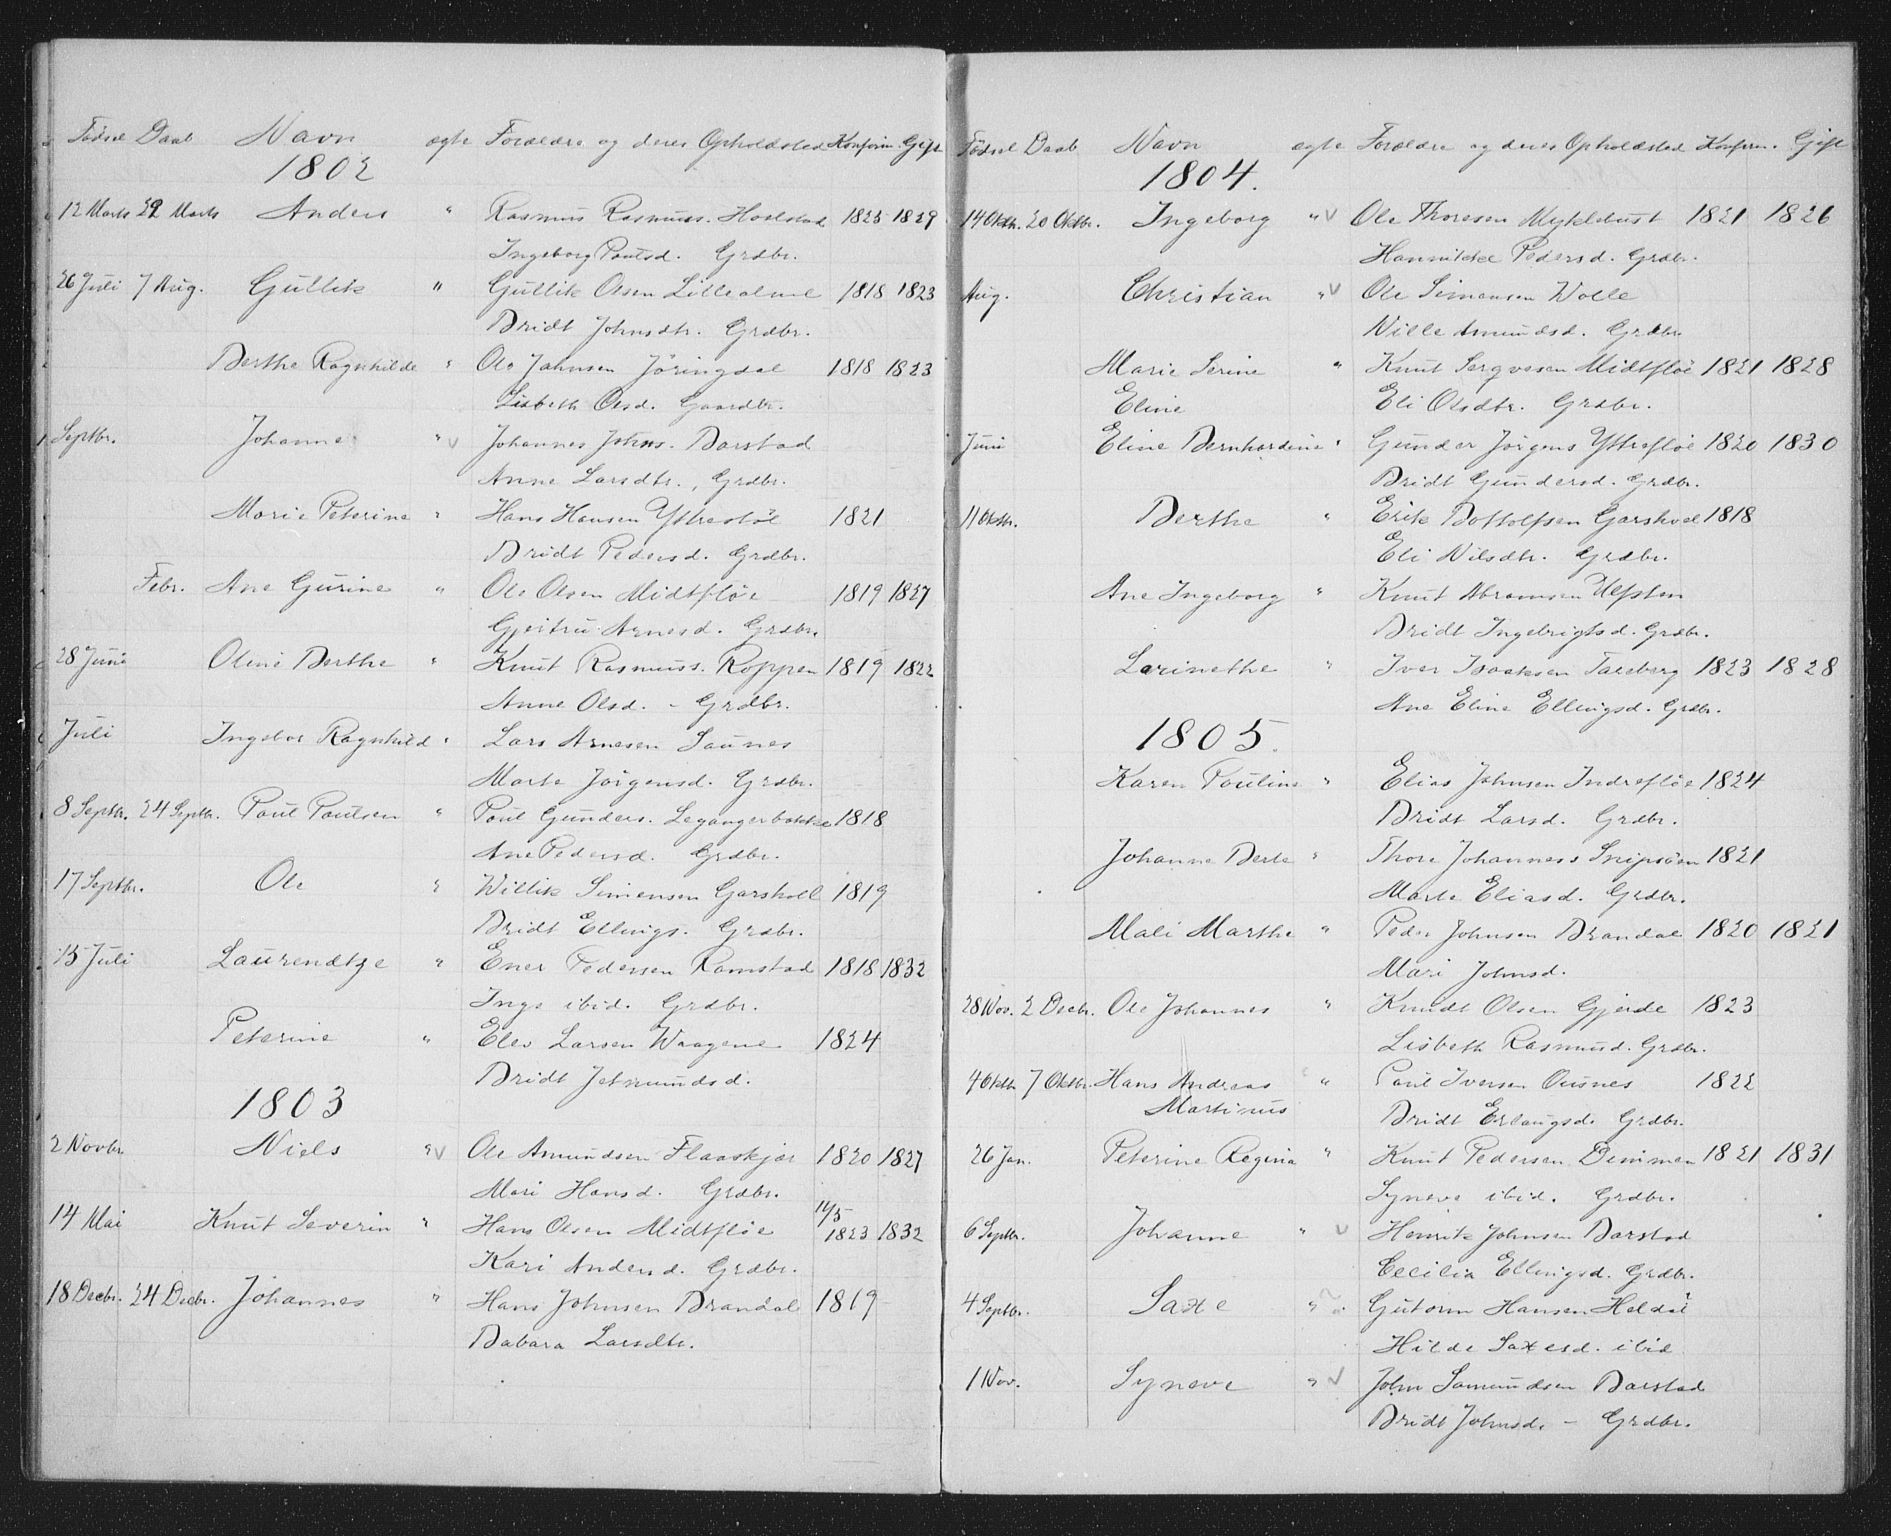 Fødsel Daab Navn ægte Forældre og deres Opholdsted Konfirm. Gift
1802
12 Marts 29 Marts Anders " Rasmus Rasmuss. 1825 1829
Ingeborg Poulsd. Grdbr.
26 Juli 7 Aug. Gullik " Gullik Olsen 1818 1823
Bridt Johnsdtr. Grdbr.
Berthe Ragnhilde " Ole Johnsen Jöringdal 1818 1823
Lisbeth Olsd. Gaardbr.
Septbr. Johanne " v Johannes Johns. Barstad
Anne Larsdtr., Grdbr.
Marie Peterine " Hans Hansen Yttrefløe 1821
Bridt Pedersd. Grdbr.
Febr. Ane Gurine " Ole Olsen Midtfløe 1819 1827
Gjertru Arnesd. Grdbr.
28 Juni Oline Berthe " Knut Rasmuss. Roppen 1819 1822
Anne Olsd. - Grdbr.
Juli Ingebor Ragnhild " Lars Arnesen Saunes
Marte Jørgensd. Grdbr.
8 Septbr. 24 Septbr. Poul Poulsen " Poul Gunders. Legangerbakke 1818
Ane Pedersd. Grdbr.
17 Septbr. Ole " Willik Simensen Garshall 1819
Bridt Ellings. Grdbr.
15 Juli Laurendtze " Ener Pedersen Ramstad 1818 1832
Inge ibid. Grdbr.
Peterine " Elev Larsen Waagene 1824
Bridt Jetmundsd.
1803
2 Novbr. Niels " v Ole Amundsen Flaaskjær 1820 1827
Mari Hansd. Grdbr.
14 Mai Knut Severin " Hans Olsen Midtfløe 14/5 1823 1832
Kari Andersd. Grdbr.
18 Decbr. 24 Decbr. Johannes " Hans Johnsen Brandal 1819
Babara Larsdtr.
Fødsel Daab Navn ægte Forældre og deres Opholdsted Konfirm. Gift
1804.
14 Oktbr. 20 Oktbr. Ingeborg " v Ole Thoresen Myklebust 1821 1826
Hannikke Pedersd. Grdbr.
Aug. Christian " v Ole Simensen Wolle
Nille Amundsd. Grdbr.
Marie Serine " Knut Sergvesen Midtfløe 1821 1828
Eline Eli Olsdtr. Grdbr.
Juni Eline Bernhardine " Gunder Jørgens Yttrefløe 1820 1830
Bridt Gundersd. Grdbr.
11 Oktbr. Berthe " Erik Bottolfsen Garshall 1818
Eli Nilsdtr. Grdbr.
Ane Ingeborg " Knut Abramsen Ulfsten
Bridt Ingebrigtsd. Grdbr.
Larinethe " Iver Isaaksen Tareberg 1823 1828
Ane Eline Ellingsd. Grdbr.
1805.
Karen Pouline " Elias Johnsen Indrefløe 1824
Bridt Larsd. Grdbr.
Johanne Berte " Thore Johanness Snipsøen 1821
Marte Eliasd. Grdbr.
Mali Marthe " Peder Johnsen Brandal 1820 1821
Mari Johnsd.
28 Nov. 2 Decbr. Ole Johannes " Knudt Olsen Gjerde 1823
Lisbeth Rasmusd. Grdbr.
4 Oktbr. 7 Oktbr. Hans Andreas " Poul Iversen Ousnes 1822
Martinus Bridt Erlangsd. Grdbr.
26 Jan. Peterine Regina " Knut Pedersen Dimmen 1821 1831
Syneve ibid. Grdbr.
6 Septbr. Johanne " v Henrik Johnsen Barstad
Cecilia Ellingsd. Grdbr.
4 Septbr. Saxe " Gutorm Hansen Heldal
Hilde Saxesd. ibid
1 Nov. Syneve " v John Samundsen Barstad
Bridt Johnsd. - Grdbr.